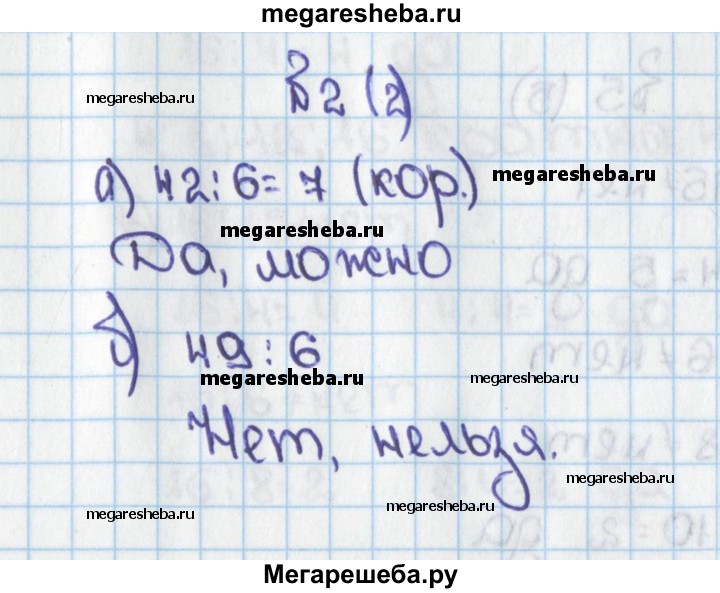 megaresheba.ru
megaresheba.ru
2 (2)
а) 42 : 6 = 7 (кор.) megaresheba.ru
megaresheba.ru
Да, можно
б) 49 : 6
megaresheba.ru megaresheba.ru
Нет, нельзя.
megaresheba.ru
megaresheba.ru megaresheba.ru
Мегарешеба.ру